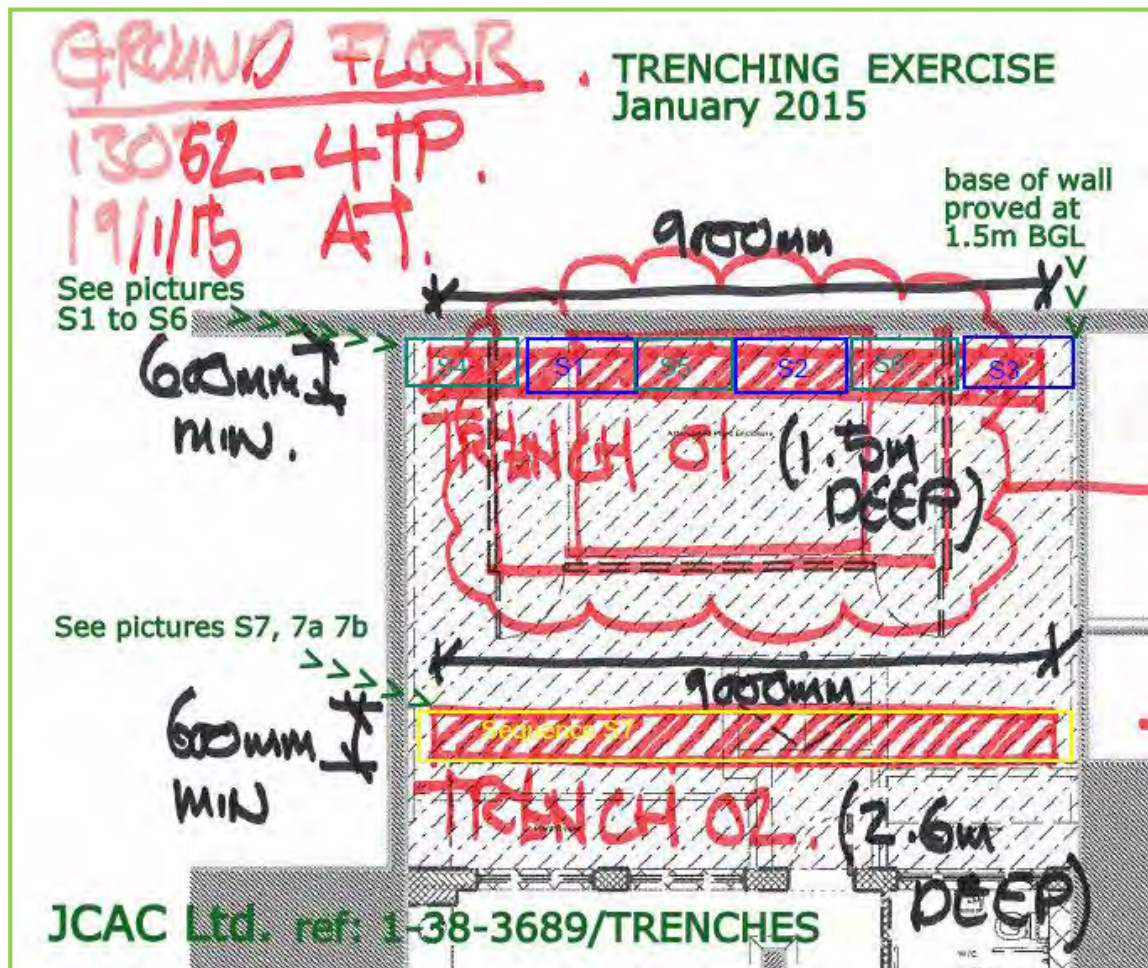 GROUND FLOOR.
13052_4TP.
19/1/15 AT.
TRENCHING EXERCISE
January 2015
base of wall
proved at
1.5m BGL
9000mm
See pictures
S1 to S6
600mm
MIN.
S4 S1 S5 S2 S6 S3
TRENCH 01 (1.5m
DEEP)
See pictures S7, 7a 7b
9000mm
600mm
MIN
Sequence S7
TRENCH 02. (2.6m
DEEP)
JCAC Ltd. ref: 1-38-3689/TRENCHES
W/C